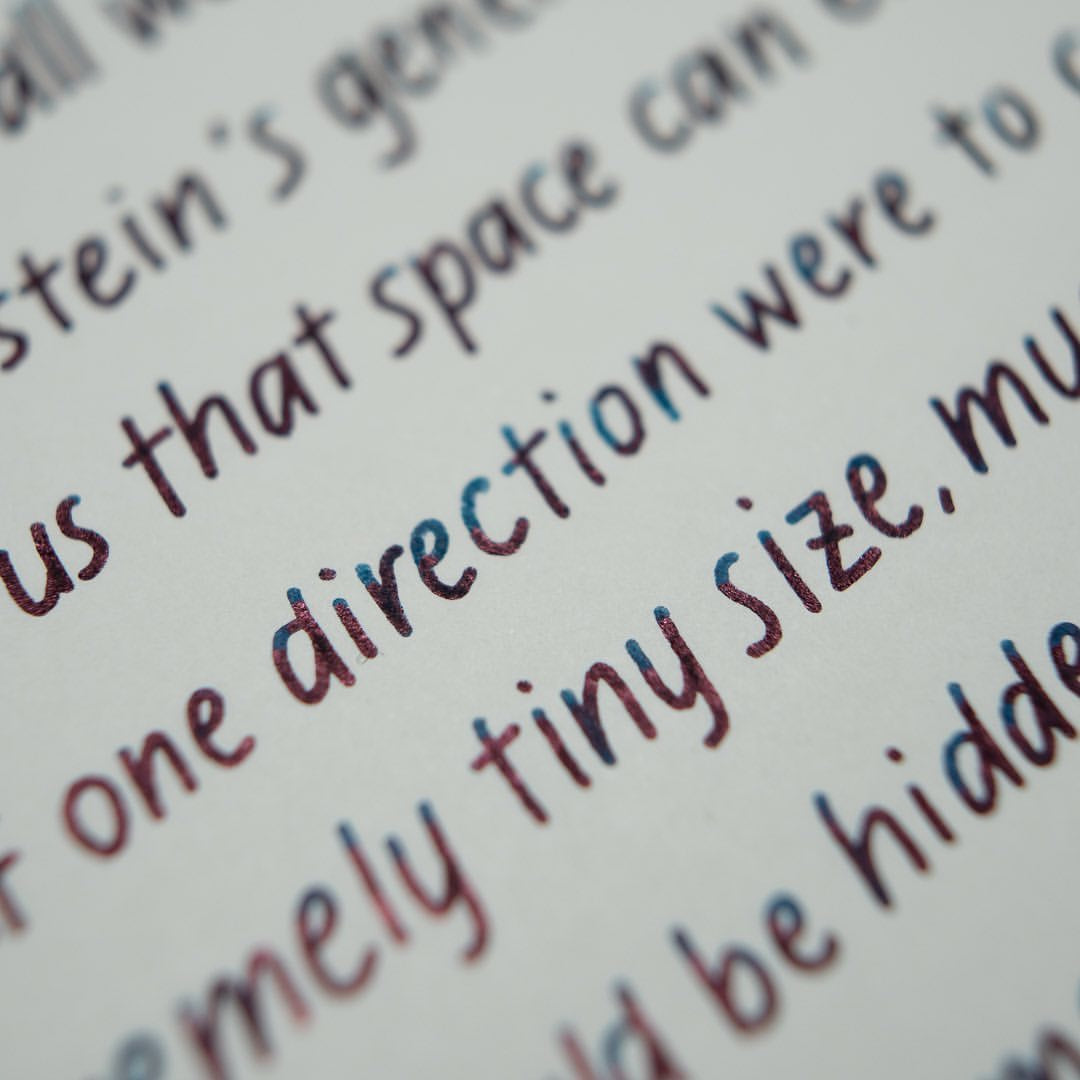 all
stein's gene
us that space can
one direction were to c
emely tiny size, mu
ld be hidde